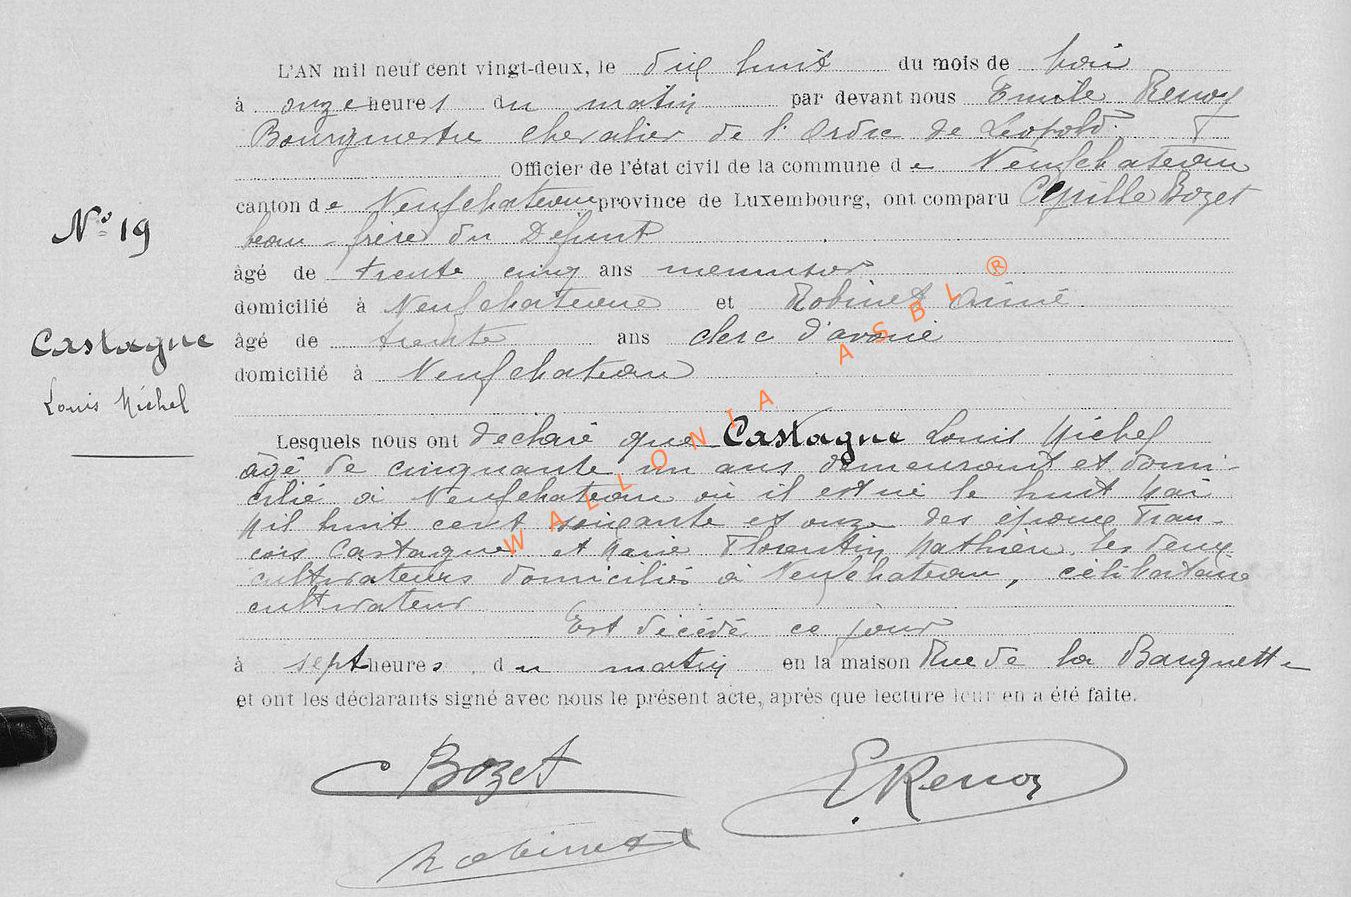 L'AN mil neuf cent vingt-deux, le dix huit du mois de Mai
à onze heures du matin par devant nous Emile Renoy
Bourgmestre Chevalier de l'Ordre de Léopold
Officier de l'état civil de la commune de Neufchateau
canton de Neufchateau province de Luxembourg, ont comparu Cyrille Bozet
beau-frère du Défunt
N° 19
âgé de trente cinq ans menuisier
domicilié à Neufchateau et Robinet Aimé
Castagne
âgé de trente ans clerc d'avoué
domicilié à Neufchateau
Louis Michel
Lesquels nous ont déclaré que Castagne Louis Michel
âgé de cinquante un ans demeurant et domi-
cilié à Neufchateau où il est né le huit Mai
Mil huit cent soixante et onze des époux Fran-
çois Castagne et Marie Florentin Mathieu, les deux
cultivateurs domiciliés à Neufchateau, célibataire
cultivateur
Est décédé ce jour
à sept heures du matin en la maison Rue de la Barquette
et ont les déclarants signé avec nous le présent acte, après que lecture leur en a été faite.
C Bozet
E. Renoy
Robinet
WALLONIA ASBL ®